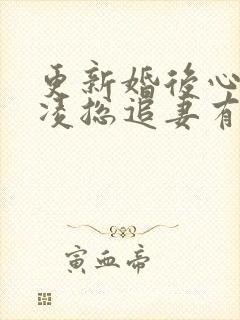 更新婚後心
凌总追妻有
寅血帝